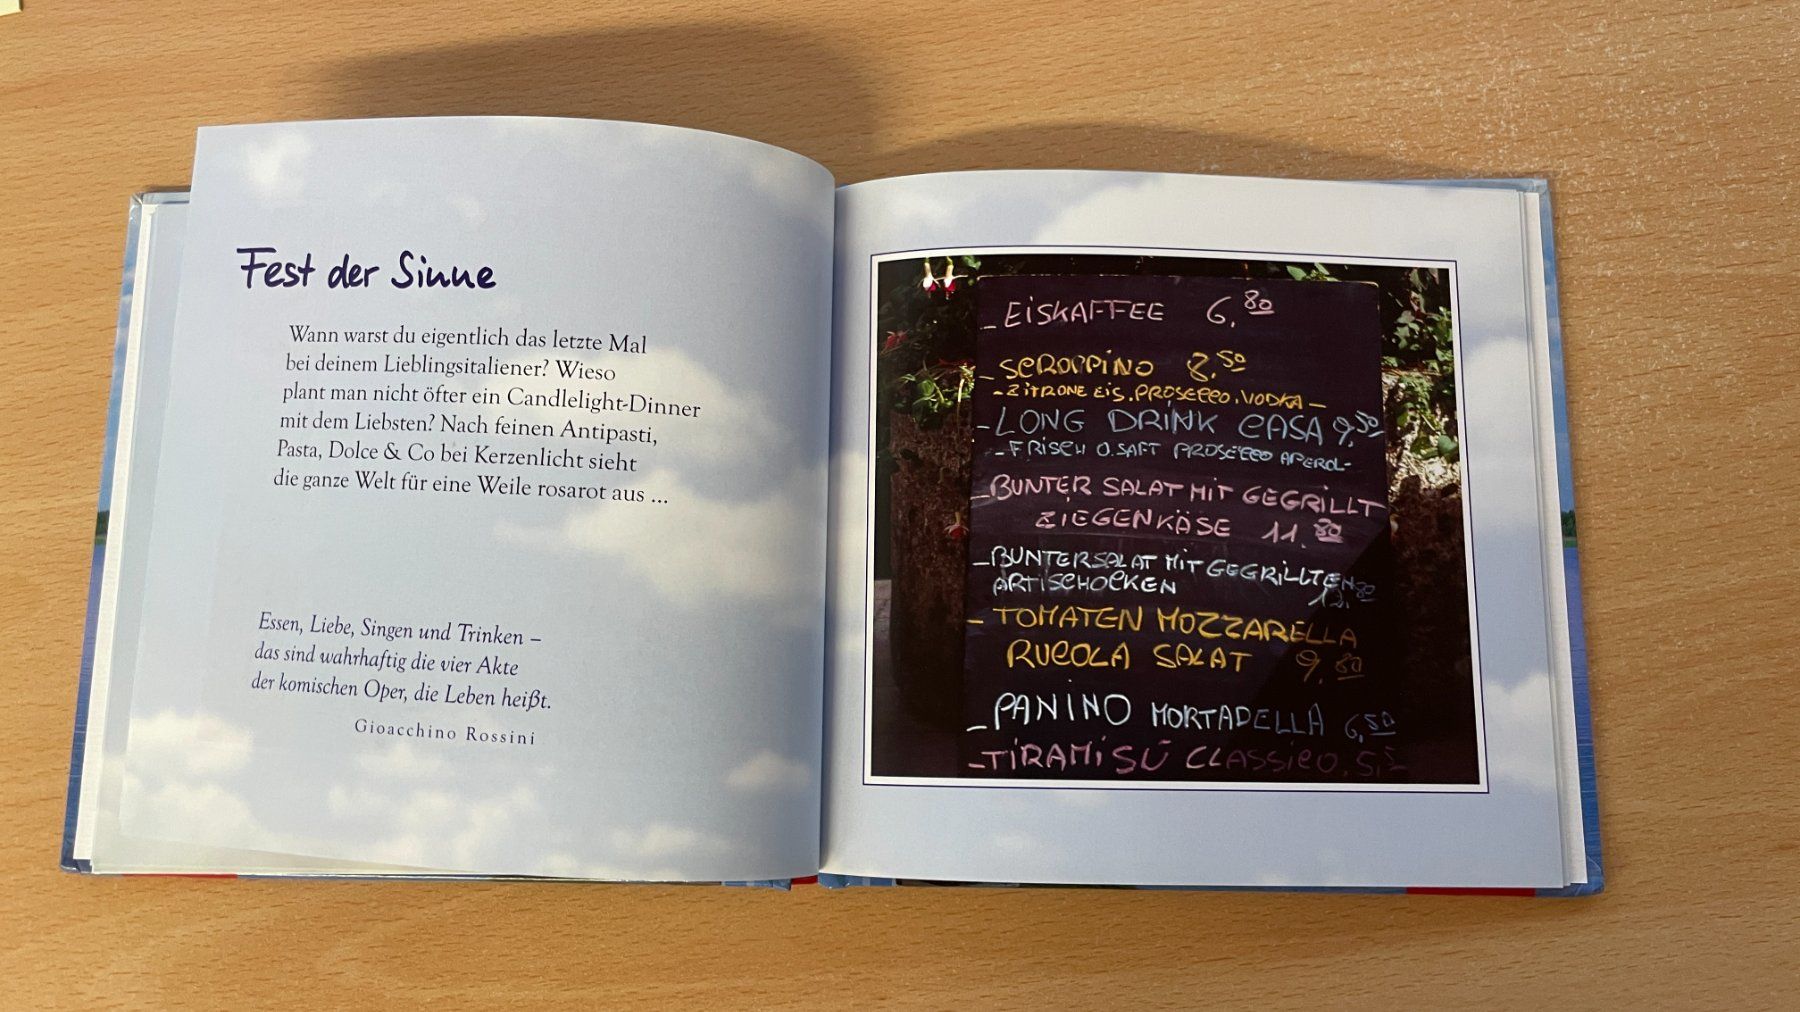 Fest der Sinne
Wann warst du eigentlich das letzte Mal
bei deinem Lieblingsitaliener? Wieso
plant man nicht öfter ein Candlelight-Dinner
mit dem Liebsten? Nach feinen Antipasti,
Pasta, Dolce & Co bei Kerzenlicht sieht
die ganze Welt für eine Weile rosarot aus ...
Essen, Liebe, Singen und Trinken –
das sind wahrhaftig die vier Akte
der komischen Oper, die Leben heißt.
Gioacchino Rossini
- EISKAFFEE 6.80
- SCROPPINO 8.50
- ZITRONE EIS. PROSECCO. VODKA -
- LONG DRINK CASA 9.50
- FRISCH O. SAFT PROSECCO APEROL -
- BUNTER SALAT MIT GEGRILLT
ZIEGENKÄSE 11.80
- BUNTER SALAT MIT GEGRILLTEN
ARTISCHOCKEN
- TOMATEN MOZZARELLA
RUCOLA SALAT 9.80
- PANINO MORTADELLA 6,50
- TIRAMISÚ CLASSICO